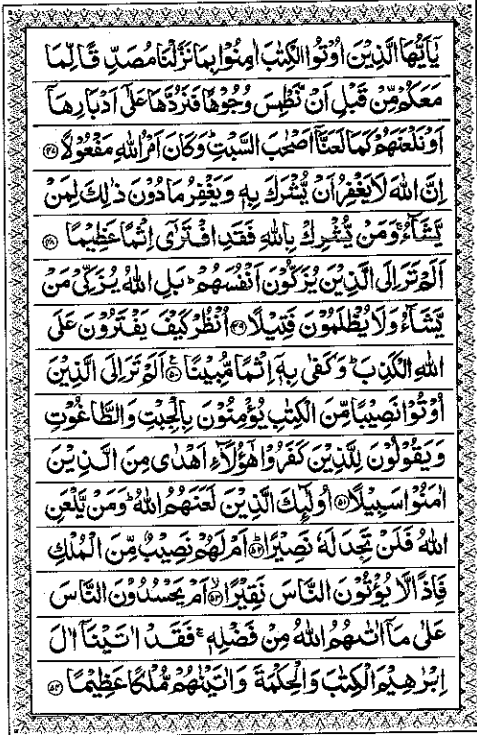 يٰۤاَيُّهَا الَّذِيْنَ اُوْتُوا الْكِتٰبَ اٰمِنُوْا بِمَا نَزَّلْنَا مُصَدِّقًا لِّمَا
مَعَكُمْ مِّنْ قَبْلِ اَنْ نَّطْمِسَ وُجُوْهًا فَنَرُدَّهَا عَلٰۤى اَدْبَارِهَاۤ
اَوْ نَلْعَنَهُمْ كَمَا لَعَنَّاۤ اَصْحٰبَ السَّبْتِؕ وَكَانَ اَمْرُ اللّٰهِ مَفْعُوْلًا ﴿۴۷﴾
اِنَّ اللّٰهَ لَا يَغْفِرُ اَنْ يُّشْرَكَ بِهٖ وَيَغْفِرُ مَا دُوْنَ ذٰلِكَ لِمَنْ
يَّشَآءُۚ وَمَنْ يُّشْرِكْ بِاللّٰهِ فَقَدِ افْتَرٰۤى اِثْمًا عَظِيْمًا ﴿۴۸﴾
اَلَمْ تَرَ اِلَى الَّذِيْنَ يُزَكُّوْنَ اَنْفُسَهُمْؕ بَلِ اللّٰهُ يُزَكِّيْ مَنْ
يَّشَآءُ وَلَا يُظْلَمُوْنَ فَتِيْلًا ﴿۴۹﴾ اُنْظُرْ كَيْفَ يَفْتَرُوْنَ عَلَى
اللّٰهِ الْكَذِبَؕ وَكَفٰى بِهٖۤ اِثْمًا مُّبِيْنًا ﴿۵۰﴾ اَلَمْ تَرَ اِلَى الَّذِيْنَ
اُوْتُوْا نَصِيْبًا مِّنَ الْكِتٰبِ يُؤْمِنُوْنَ بِالْجِبْتِ وَالطَّاغُوْتِ
وَيَقُوْلُوْنَ لِلَّذِيْنَ كَفَرُوْا هٰۤؤُلَآءِ اَهْدٰى مِنَ الَّذِيْنَ
اٰمَنُوْا سَبِيْلًا ﴿۵۱﴾ اُولٰٓئِكَ الَّذِيْنَ لَعَنَهُمُ اللّٰهُؕ وَمَنْ يَّلْعَنِ
اللّٰهُ فَلَنْ تَجِدَ لَهٗ نَصِيْرًا ﴿۵۲﴾ اَمْ لَهُمْ نَصِيْبٌ مِّنَ الْمُلْكِ
فَاِذًا لَّا يُؤْتُوْنَ النَّاسَ نَقِيْرًا ﴿۵۳﴾ اَمْ يَحْسُدُوْنَ النَّاسَ
عَلٰى مَاۤ اٰتٰىهُمُ اللّٰهُ مِنْ فَضْلِهٖۚ فَقَدْ اٰتَيْنَاۤ اٰلَ
اِبْرٰهِيْمَ الْكِتٰبَ وَالْحِكْمَةَ وَاٰتَيْنٰهُمْ مُّلْكًا عَظِيْمًا ﴿۵۴﴾